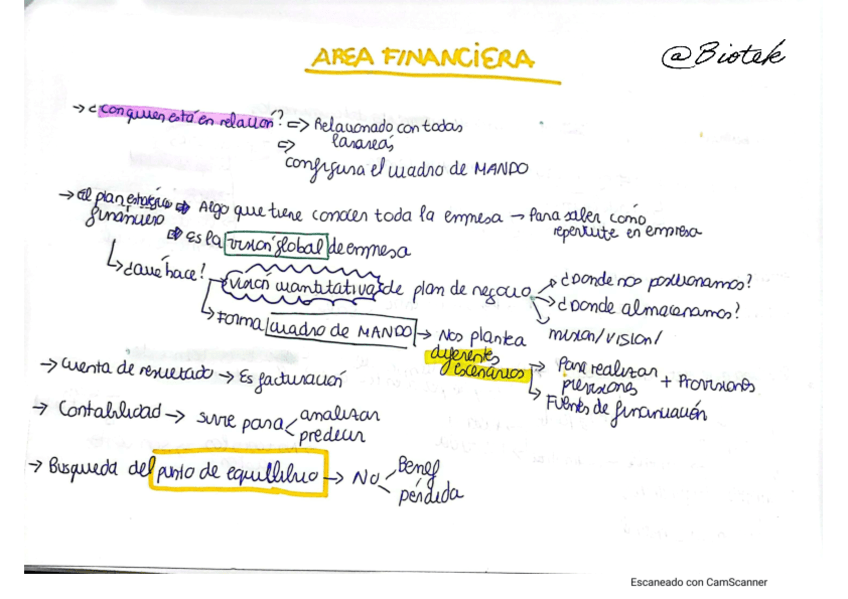 AREA FINANCIERA
@Biotek
→ ¿con quien está en relación? => Relacionado con todas
las areas
=> configura el cuadro de MANDO
→ el plan estratégico => Algo que tiene conocer toda la empresa → Para saber como
financiero
repercute en empresa
=> es la visión global de empresa
¿que hace? visión cuantitativa de plan de negocio → ¿Donde nos posicionamos?
→ ¿Donde almacenamos?
mision/VISION/
Forma cuadro de MANDO → Nos plantea
diferentes
escenarios → Para realizar
previsiones + Provisiones
Fuentes de financiación
→ Cuenta de resultado → Es facturación
→ Contabilidad → sirve para < analizar
predecir
→ Busqueda del punto de equilibrio → NO < Benef
pérdida
Escaneado con CamScanner